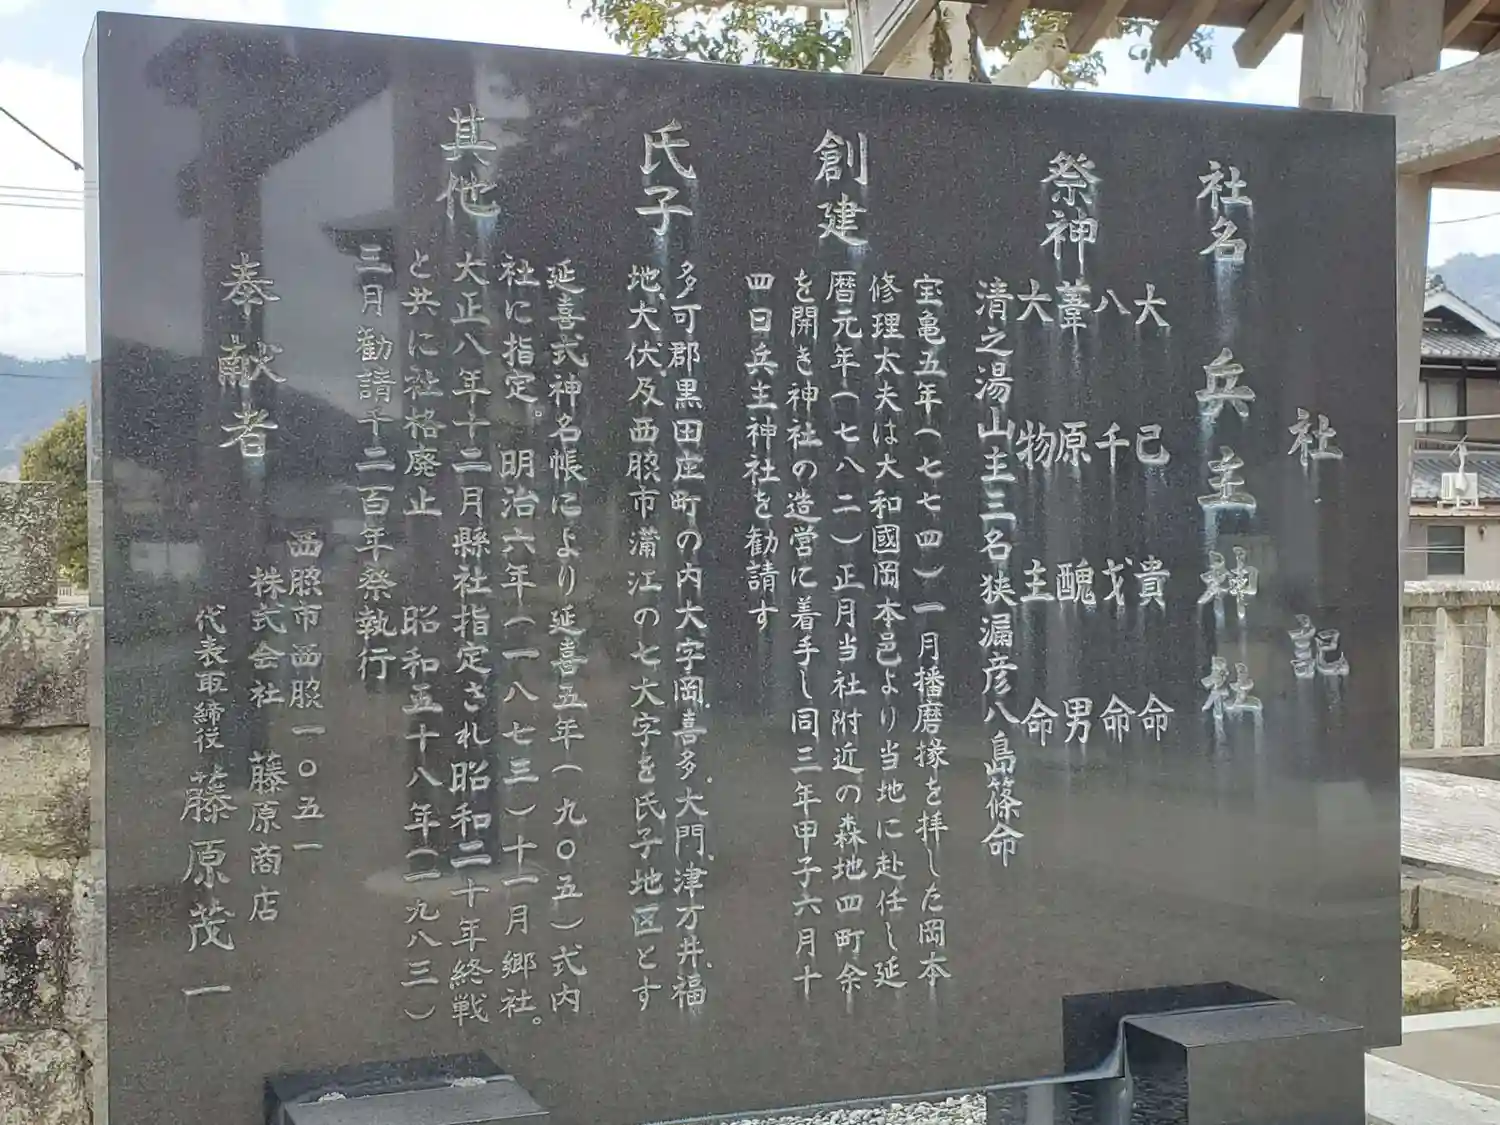 社記
社名 兵主神社
祭神 大己貴命
八千戈命
葦原醜男命
大物主命
清之湯山主三名狭漏彦八島篠命
創建 宝亀五年(七七四)一月播磨掾を拝した岡本
修理太夫は大和國岡本邑より当地に赴任し延
暦元年(七八二)正月当社附近の森地四町余
を開き神社の造営に着手し同三年甲子六月十
四日兵主神社を勧請す
氏子 多可郡黒田庄町の内大字岡、喜多、大門、津万井、福
地、大伏、及西脇市蒲江の七大字を氏子地区とす
其他 延喜式神名帳により延喜五年(九〇五)式内
社に指定。明治六年(一八七三)十一月郷社。
大正八年十二月縣社指定され昭和二十年終戦
と共に社格廃止 昭和五十八年(一九八三)
三月勧請千二百年祭執行
奉献者 西脇市西脇一〇五一
株式会社 藤原商店
代表取締役 藤原茂一